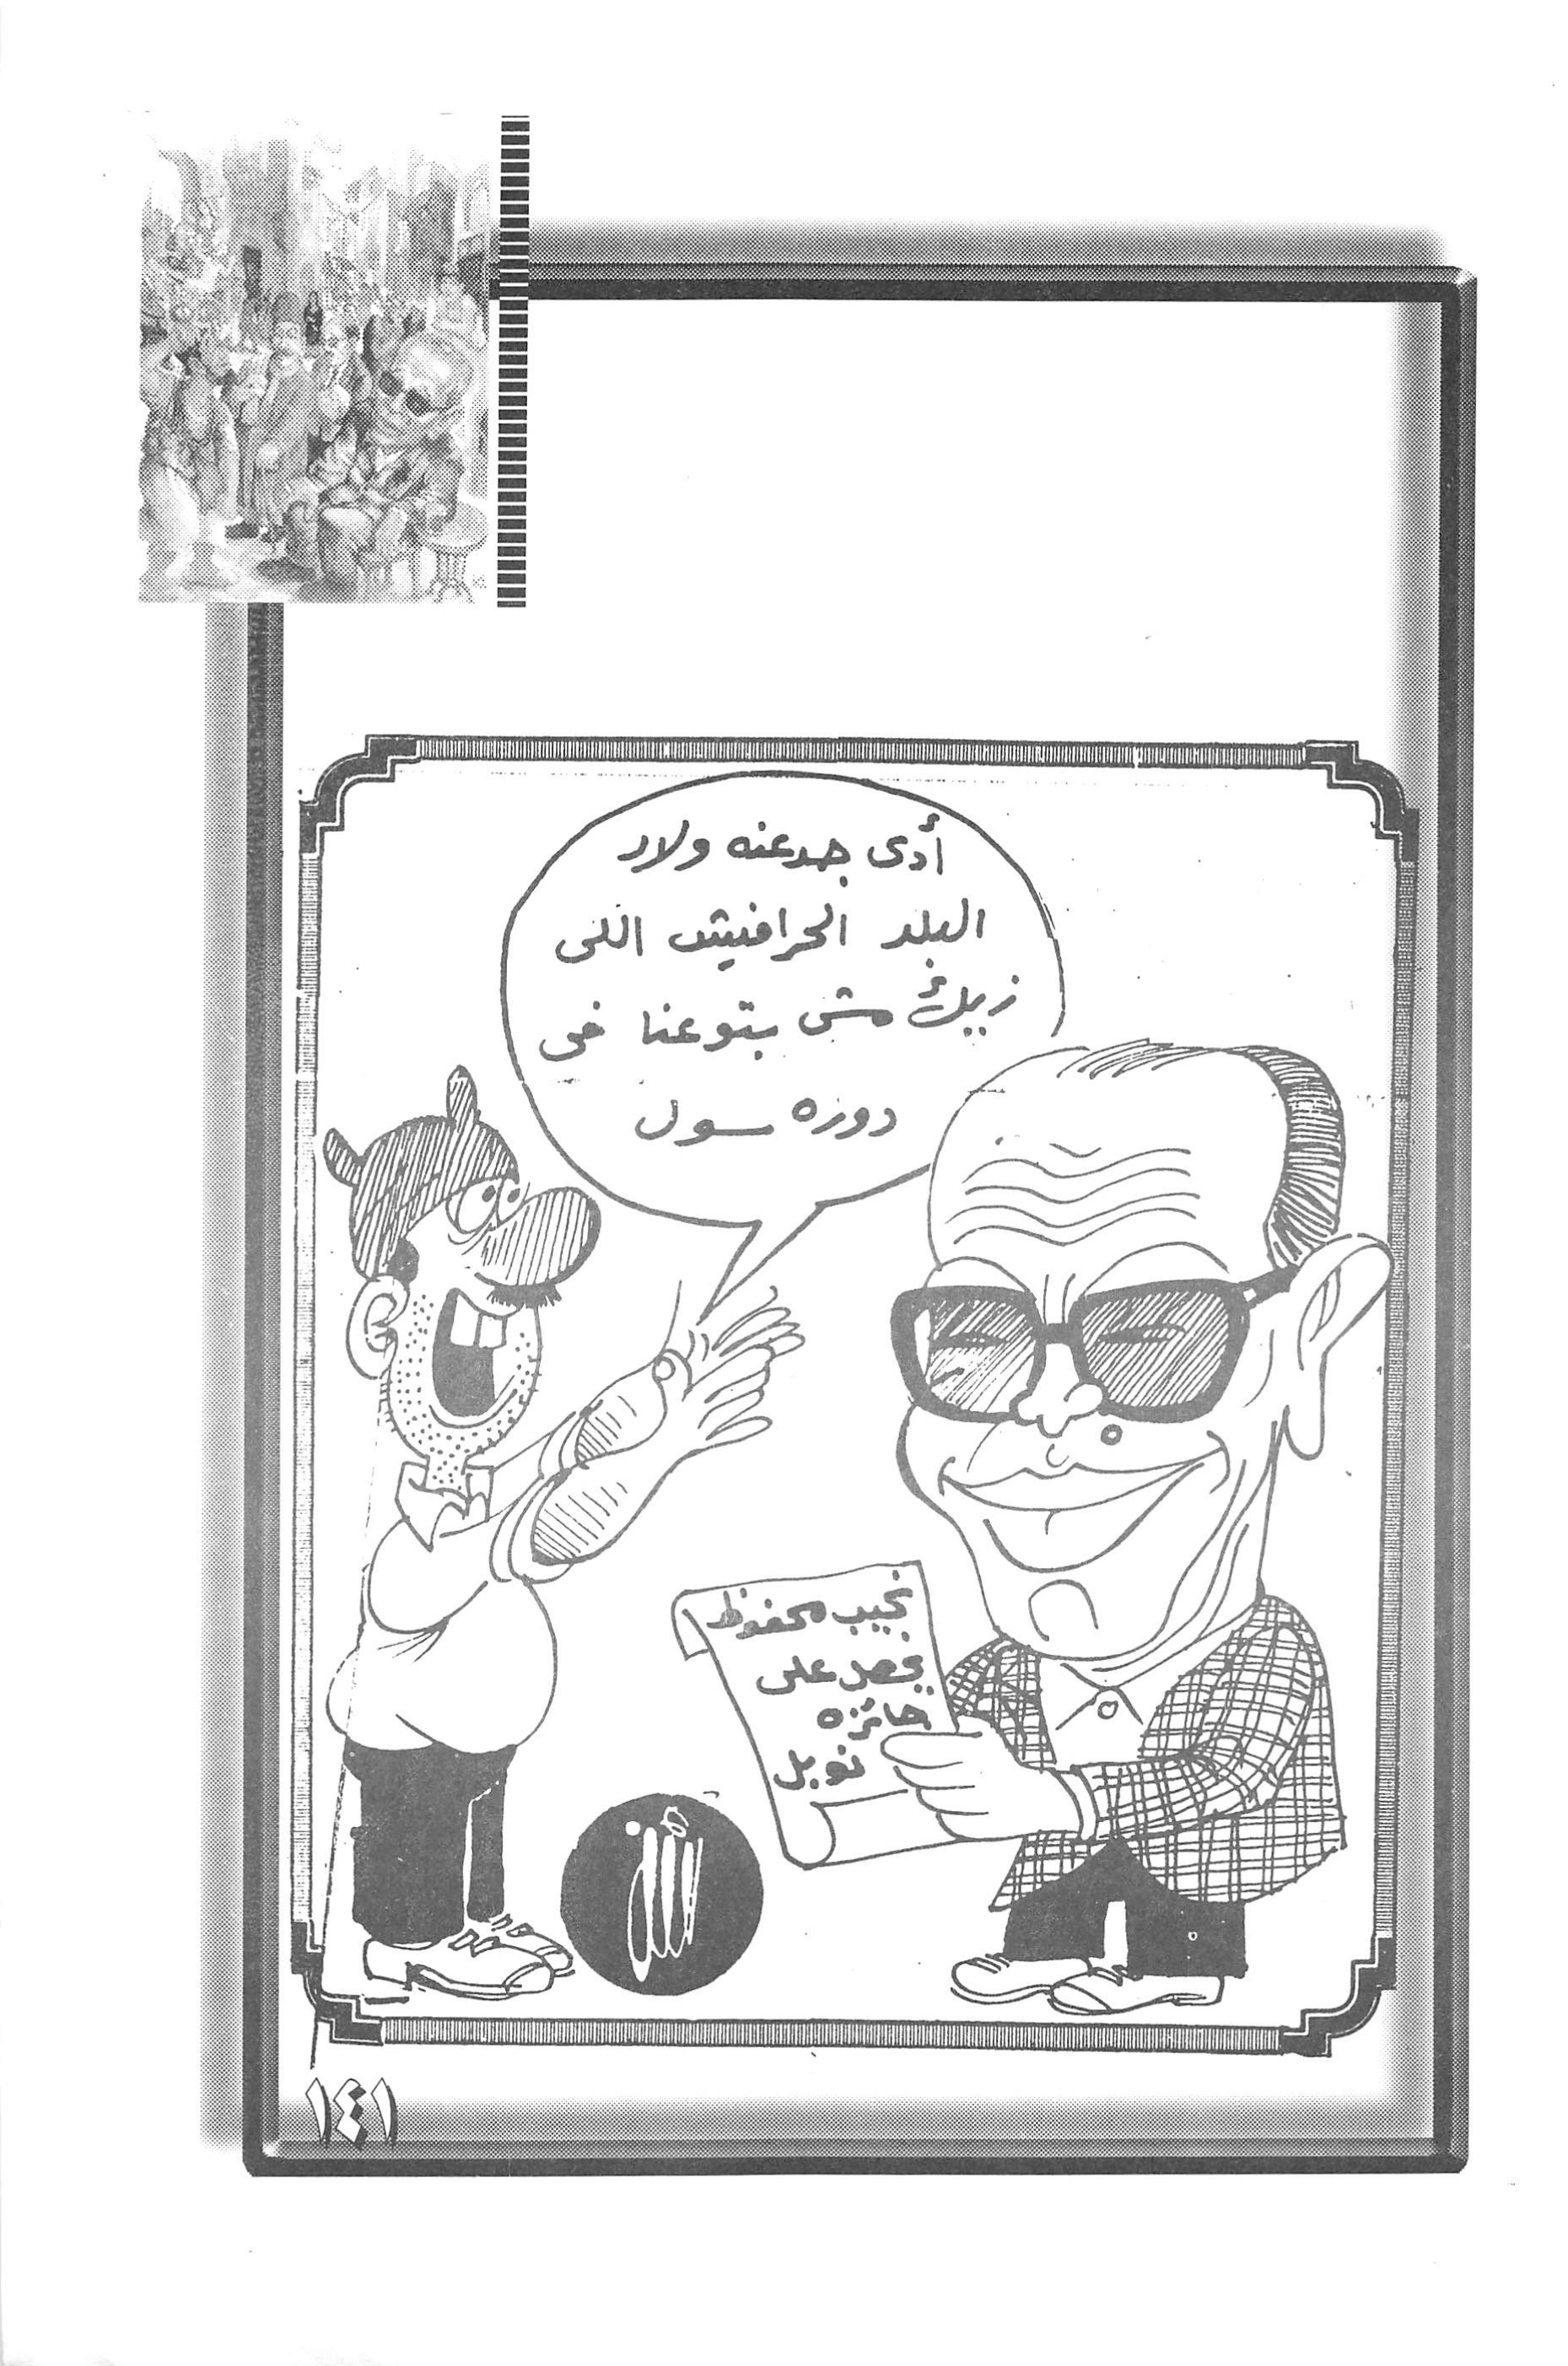 أدى جدعنه ولاد
البلد الحرافيش اللى
زيك مش بتوعنا فى
دورة سول
نجيب محفوظ
يحصل على
جائزة
نوبل
١٤١